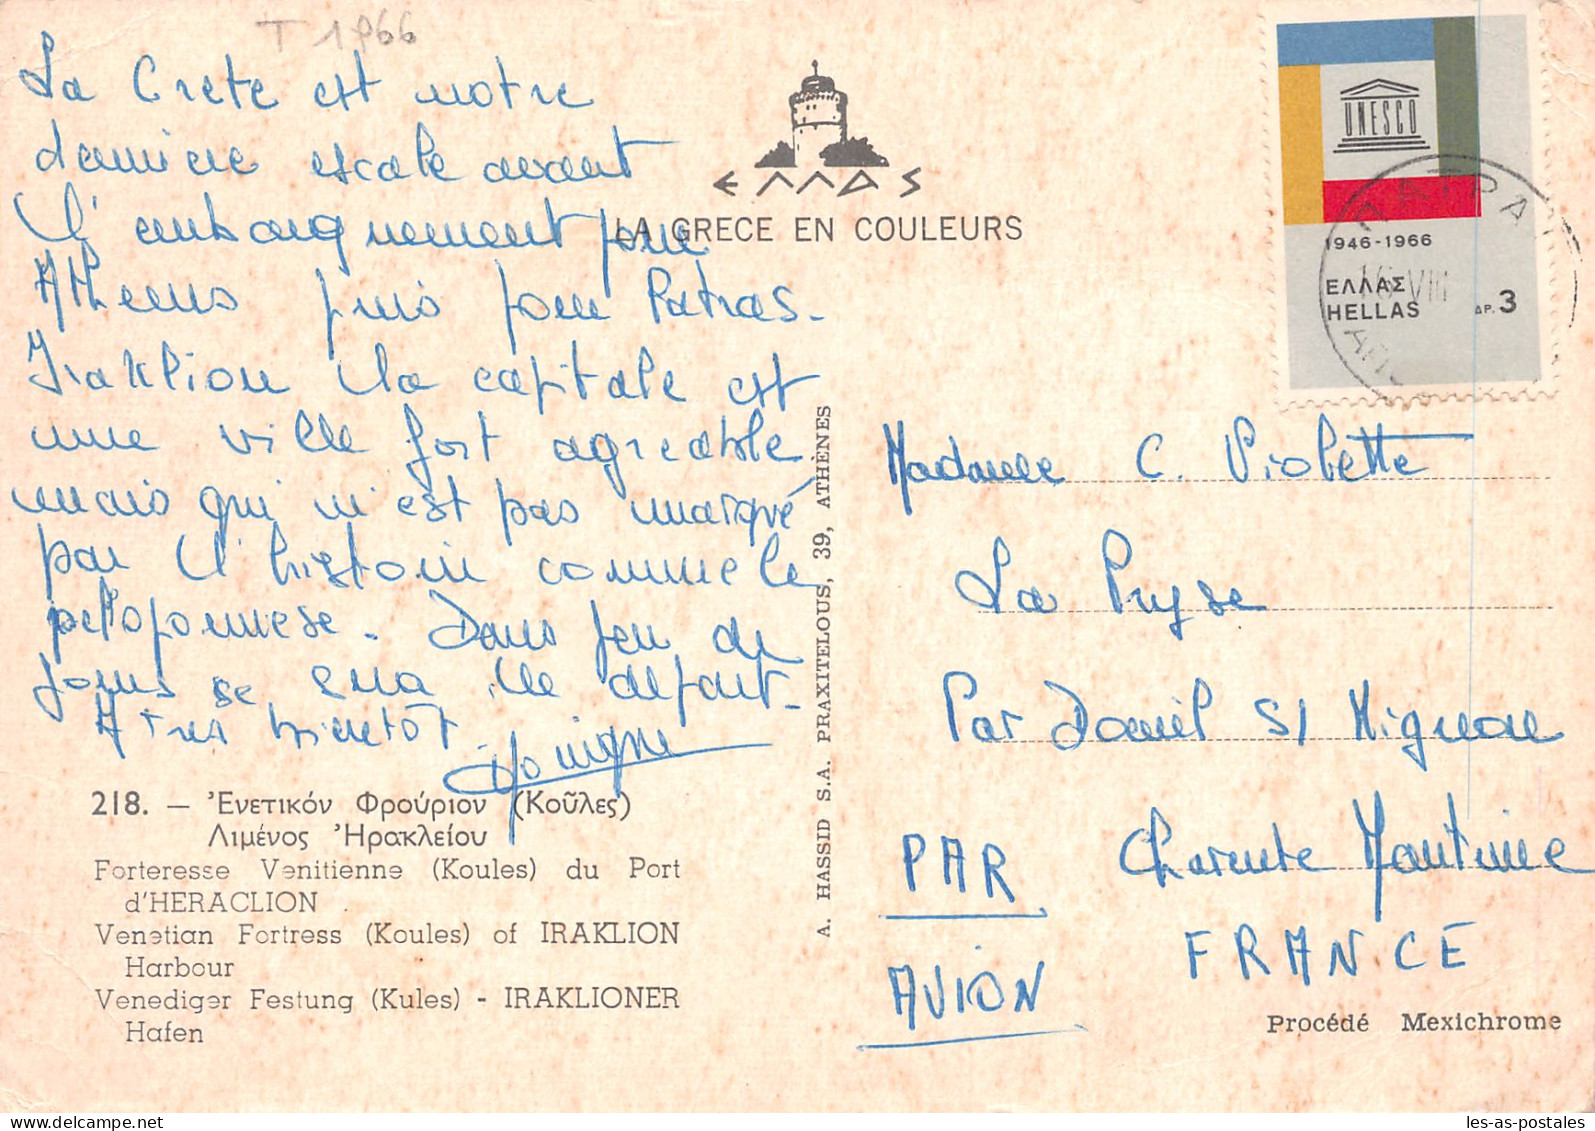 T 1966
La Crete est notre
derniere escale avant
l'embarquement pour
Athenes puis pour Patras.
Iraklion la capitale est
une ville fort agreable
mais qui n'est pas marqué
par l'histoire comme le
peloponnese. Dans peu de
jours se sera le depart.
A tres bientôt
ΕΛΛΑΣ
LA GRECE EN COULEURS
UNESCO
1946-1966
ΕΛΛΑΣ
HELLAS ΔΡ. 3
ΠΑΤΡΑΙ
16 VIII
Madame C. Violette
La Pryse
Par Damil S/ Mignon
Charente Maritime
FRANCE
PAR
AVION
218. — Ἐνετικόν Φρούριον (Κοῦλες)
Λιμένος Ἡρακλείου
Forteresse Venitienne (Koules) du Port
d'HERACLION
Venetian Fortress (Koules) of IRAKLION
Harbour
Venediger Festung (Kules) - IRAKLIONER
Hafen
A. HASSID S.A. PRAXITELOUS, 39, ATHÈNES
Procédé Mexichrome
les-as-postales